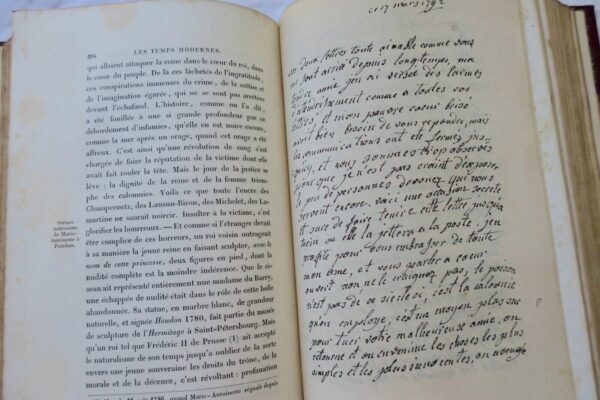 294
LES TEMPS MODERNES.
qui allaient attaquer la reine dans le cœur du roi, dans
le cœur du peuple. De là ces lâchetés de l'ingratitude,
ces conspirations immenses du crime, de la sottise et
de l'imagination égarée, qui ne se sont pas arrêtées
devant l'échafaud. L'histoire, comme on l'a dit,
a été fouillée à une si grande profondeur par ce
débordement d'infamies, qu'elle en est noire encore,
comme la mer après un orage, quand cet orage a été
affreux. C'est ainsi qu'une révolution de sang s'est
chargée de faire la réputation de la victime dont elle
avait fait rouler la tête. Mais le jour de la justice se
lève : la dignité de la reine et de la femme triom-
phe des calomnies. Voilà ce que toute l'encre des
Champcenetz, des Lausun-Biron, des Michelet, des La-
martine ne saurait noircir. Insulter à la victime, c'est
glorifier les bourreaux. — Et comme si l'étranger devait
être complice de ces horreurs, un roi voisin outrageait
à sa manière la jeune reine en faisant sculpter, avec le
nom de cette princesse, deux figures en pied, dont la
nudité complète est la moindre indécence. Que le ci-
seau ait représenté entièrement nue madame du Barry,
une échappée de nudité était dans le rôle de cette belle
abandonnée. Sa statue, en marbre blanc, de grandeur
naturelle, et signée Houdon 1780, fait partie du musée
de sculpture de l'Hermitage à Saint-Pétersbourg. Mais
qu'un roi tel que Frédéric II de Prusse (1) ait accepté
le naturalisme de son temps jusqu'à oublier de la sorte
envers une jeune souveraine les droits du trône, de la
pudeur et de la décence, c'est révoltant : profanation
Statues
indécentes
de Marie-
Antoinette à
Potsdam.
1786, quand Marie-Antoinette régnait depuis
ce 17 mars 1792
deux lettres toute aimable comme vous
sont arrivé depuis longtemps, ma
chère amie jen ai versée des larmes
d'attendrissement comme a toutes vos
lettres, et mon pauvre coeur brisé
aussi bien besoin de vous repondre, mais
les communications ont été fermées jus-
et nous sommes trop observés
pour que je n'est pas craint d'exposer
le peu de personnes devouez qui nous
servent encore. vaici une occasion secrete
et sure de faire tenir cette lettre jusqua
turin ou elle la jettera a la poste. jen
profite pour vous embrasser de toute
mon ame, et vous parler a coeur
ouvert non, ne le craignez pas, le poison
n'est pas de ce siecle ci, c'est la calomnie
qu'on employe, c'est un moyen plus sur
pour tuer votre malheureuse amie. on
retourne et on envenime les choses les plus
simples et les plus innocentes, on aveugle